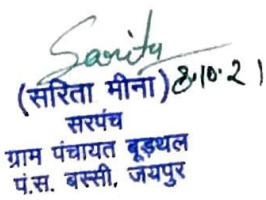 Sarita
(सरिता मीना) 8.10.21
सरपंच
ग्राम पंचायत बूड़थल
पं.स. बस्सी, जयपुर